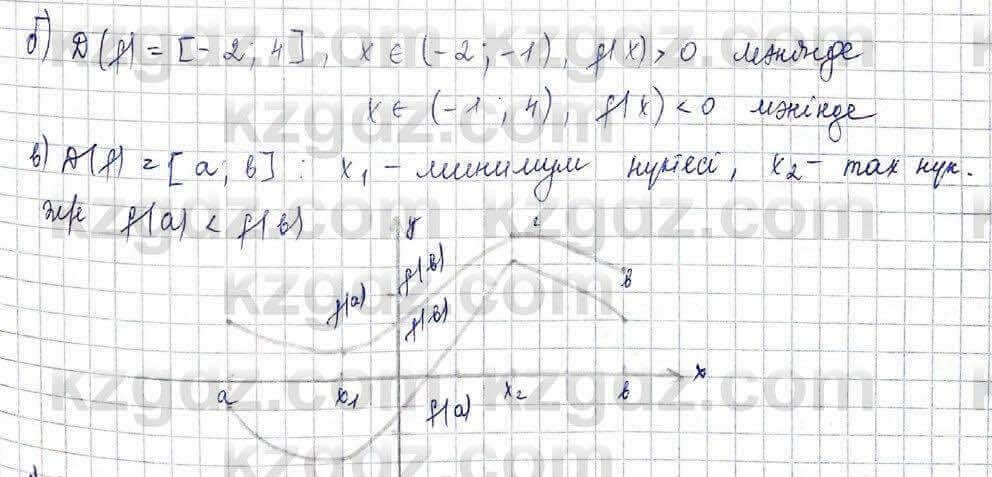 б) D(f) = [-2; 4], x ∈ (-2; -1), f(x) > 0 мәнінде
x ∈ (-1; 4), f(x) < 0 мәнінде
в) D(f) = [a; в] : x₁ - минимум нүктесі, x₂ - max нүк.
және f(a) < f(в)
y
f(в)
f(a)
f(в)
в
a x₁ f(a) x₂ в x
kzgdz.com